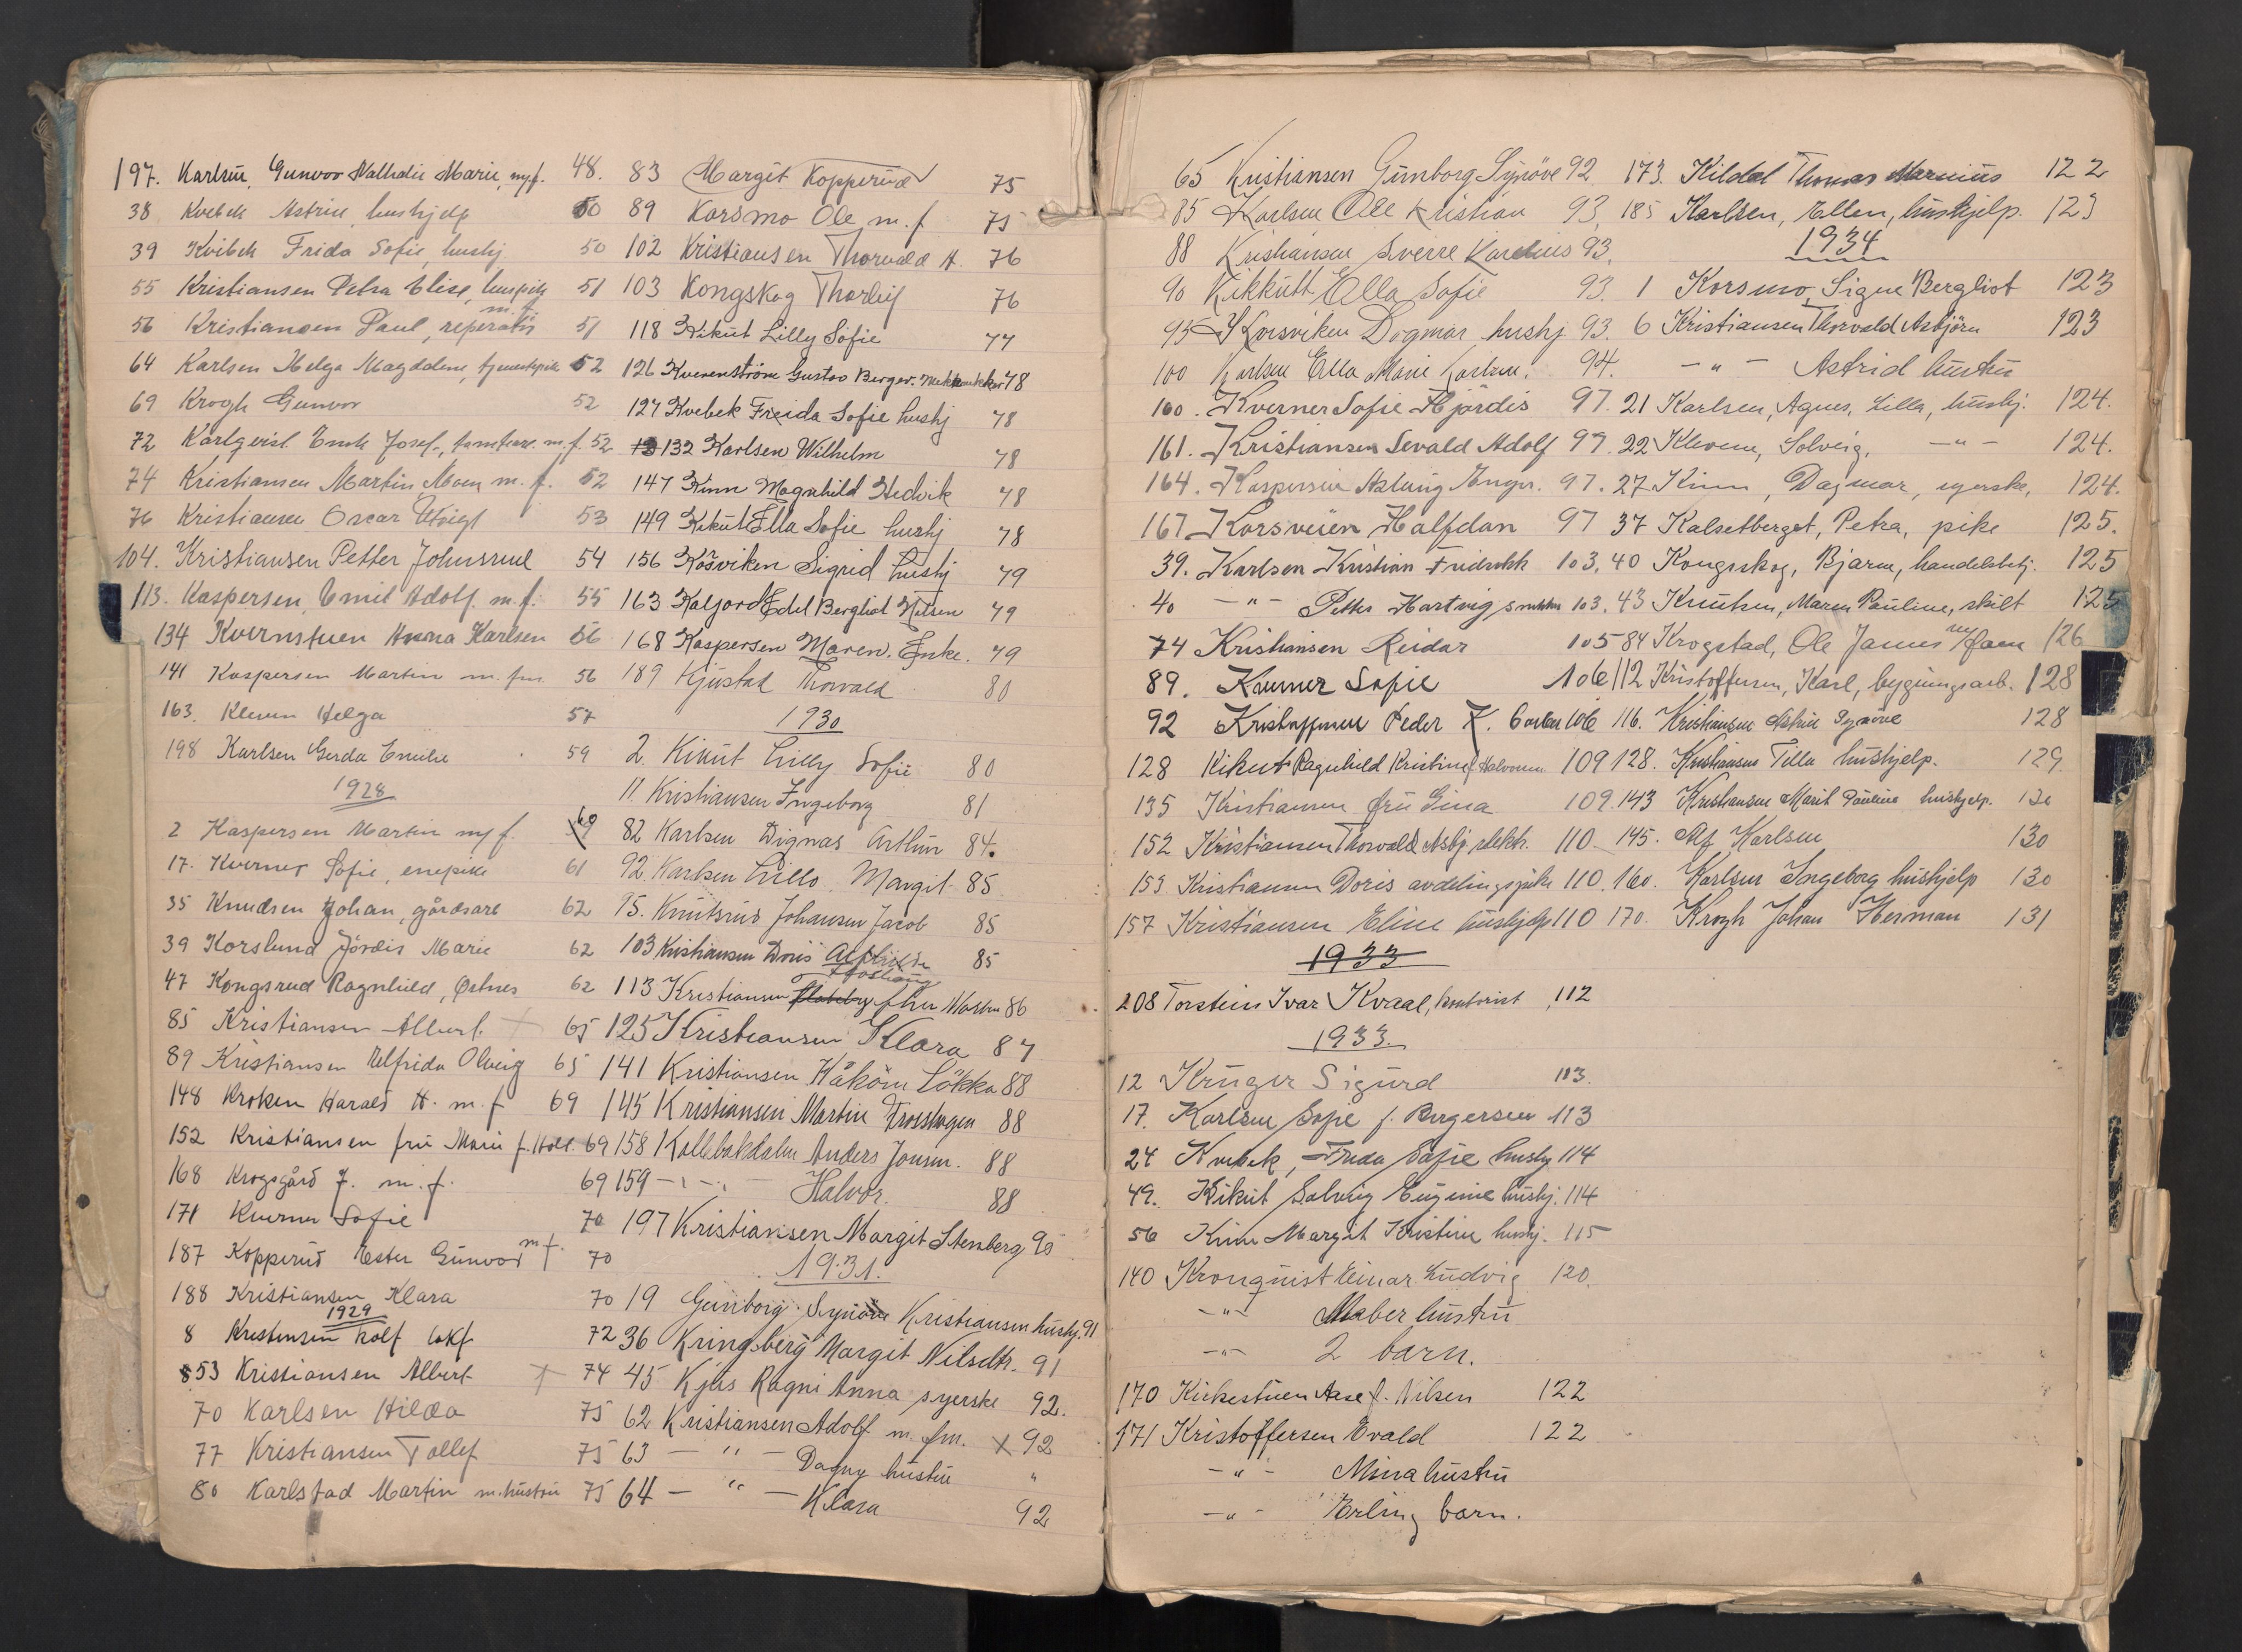 197. Karlsen, Gunvor Nathalie Marie, m.f. 48.
38 Kvebek Astrid, hushjelp 50
39 Kvibek Frida Sofie, hushj. 50
55 Kristiansen Petra Elise, huspike 51
56 Kristiansen Paul, reperatør m.f. 51
64 Karlsen Helga Magdalene, tjenestepike 52
69 Krogh Gunvor 52
72 Josef, m.f. 52
74 Kristiansen Martin Moen m.f. 52
76 Kristiansen Oscar 53
104. Kristiansen Petter Johnsrud 54
113. Kaspersen, Emil Adolf m.f. 55
134 Kvernstuen Karlsen 56
141 Kaspersen Martin m. fm. 56
163. Kleven Helga 57
198 Karlsen Gerda Emilie 59
1928
2 Kaspersen Martin m/f. 60
17. Kverner Sofie, enepike 61
35 Knudsen Johan, gårdsarb 62
39 Korslund Jördis Marie 62
47 Kongsrud Ragnhild, Østnes 62
85 Kristiansen Albert 65
89 Kristiansen Alfrida Olveig 65
148 Kroken Harald H. m.f 69
152 Kristiansen fru Marie f. Holl. 69
168 Krogsgård J. m.f. 69
171 Kverner Sofie 70
187 Kopperud Ester Gunvor m.f. 70
188 Kristiansen Klara 70
1929
8 Kristensen Rolf lokf 72
53 Kristiansen Albert 74
70 Karlsen Hilda 75
77 Kristiansen Tollef 75
80 Karlstad Martin m. hustru 75
83 Margit Kopperud 75
89 Korsmo Ole m.f 75
102 Kristiansen Thorvald H. 76
103 Kongskog Thorleif 76
118 Kikut Lilly Sofie 77
126 Kvernström Gustav Berger. 78
127 Kvebek Freida Sofie hushj 78
132 Karlsen Wilhelm 78
147 Kinn Magnhild Hedvik 78
149 Kikut Ella Sofie hushj 78
156 Kåsviken Sigrid hushj 79
163 Kaljord Edel Bergliot Nilsen 79
168 Kaspersen Maren. Enke. 79
189 Kjustad Thorvald 80
1930
2. Kikut Lilly Sofie 80
11. Kristiansen Ingeborg 81
82 Karlsen Dignas Arthur 84.
92 Karlsen Lillo Margit 85
95. Knutsrud Johansen Jacob 85
103 Kristiansen Doris 85
113 Kristiansen 86
125 Kristiansen Klara 87
141 Kristiansen Håkon Løkka 88
145 Kristiansen Martin Frosshagen 88
158 Kollbakdalen Anders Jonsen. 88
159 - " - Halvor. 88
197 Kristiansen Margit Stenberg 90
1931.
19 Gunborg Synöve Kristiansen hushj. 91
36 Kringsberg Margit Nilsdtr. 91
45 Kjus Ragni Anna syerske 92.
62 Kristiansen Adolf m. fm. x 92
63 - " - Dagny hustru "
64 - " - Klara 92
65 Kristiansen Gunborg Synöve 92
85 Karlsen Ole Kristian 93.
88 Kristiansen Sverre Karelius 93.
90 Kikkutt Ella Sofie 93.
95 Korsviken Dagmar hushj. 93.
100 Karlsen Ella Marie Karlsen. 94.
160. Kverner Sofie Hjördis 97.
161. Kristiansen Sevald Adolf 97.
164. Kaspersen Aslaug 97.
167 Korsveien Halfdan 97
39. Karlsen Kristian Fredrikk 103.
40 - " - Petter Hartvig snekker 103.
74 Kristiansen Reidar 105
89. Kverner Sofie 106
92 Kristoffersen Peder K. 106
128 Kikut Ragnhild Kristine f. Halvorsen 109
135 Kristiansen fru Gina 109.
152 Kristiansen Thorvald Asbj. elektr. 110
153 Kristiansen Doris avdelingspike 110.
157 Kristiansen Eline hushjelp 110
1933
208 Torstein Ivar Kvaal, kontorist 112
1933.
12 Krüger Sigurd 113.
17. Karlsen Sofie f. Bergersen 113
24 Kvebek, Frida Sofie hushj 114
49. Kikut Solveig Eugenie hushj. 114
56 Kinn Margit Kristine hushj. 115
140 Kronquist Einar Ludvig 120.
- " - hustru
- " - 2 barn.
170 Kirkestuen Aase f. Nilsen 122
171 Kristoffersen Evald 122
- " - Mina hustru
- " - Erling barn.
173. Kildal Thomas Marinius 122
185 Karlsen, Ellen, hushjelp. 123
1934
1 Korsmo, Signe Bergliot 123
6 Kristiansen Thorvald Asbjörn 123
- " - Astrid hustru
21 Karlsen, Agnes, Lilla, hushj. 124.
22 Kleven, Solveig, - " - 124.
27 Kinn, Dagmar, syerske, 124.
37 Kalsetberget, Petra, pike 125.
40 Kongsskog, Bjarne, handelsbetj. 125
43 Knutsen, Maren Pauline, skilt 125
84 Krogstad, Ole James m/fam 126
112 Kristoffersen, Karl, bygningsarb. 128
116. Kristiansen Astrid Synöve 128
128. Kristiansen Tella hushjelp. 129
143 Kristiansen Marit Pauline hushjelp. 130
145. Alf Karlsen 130
160. Karlsen Ingeborg hushjelp 130
170. Krogh Johan Herman 131